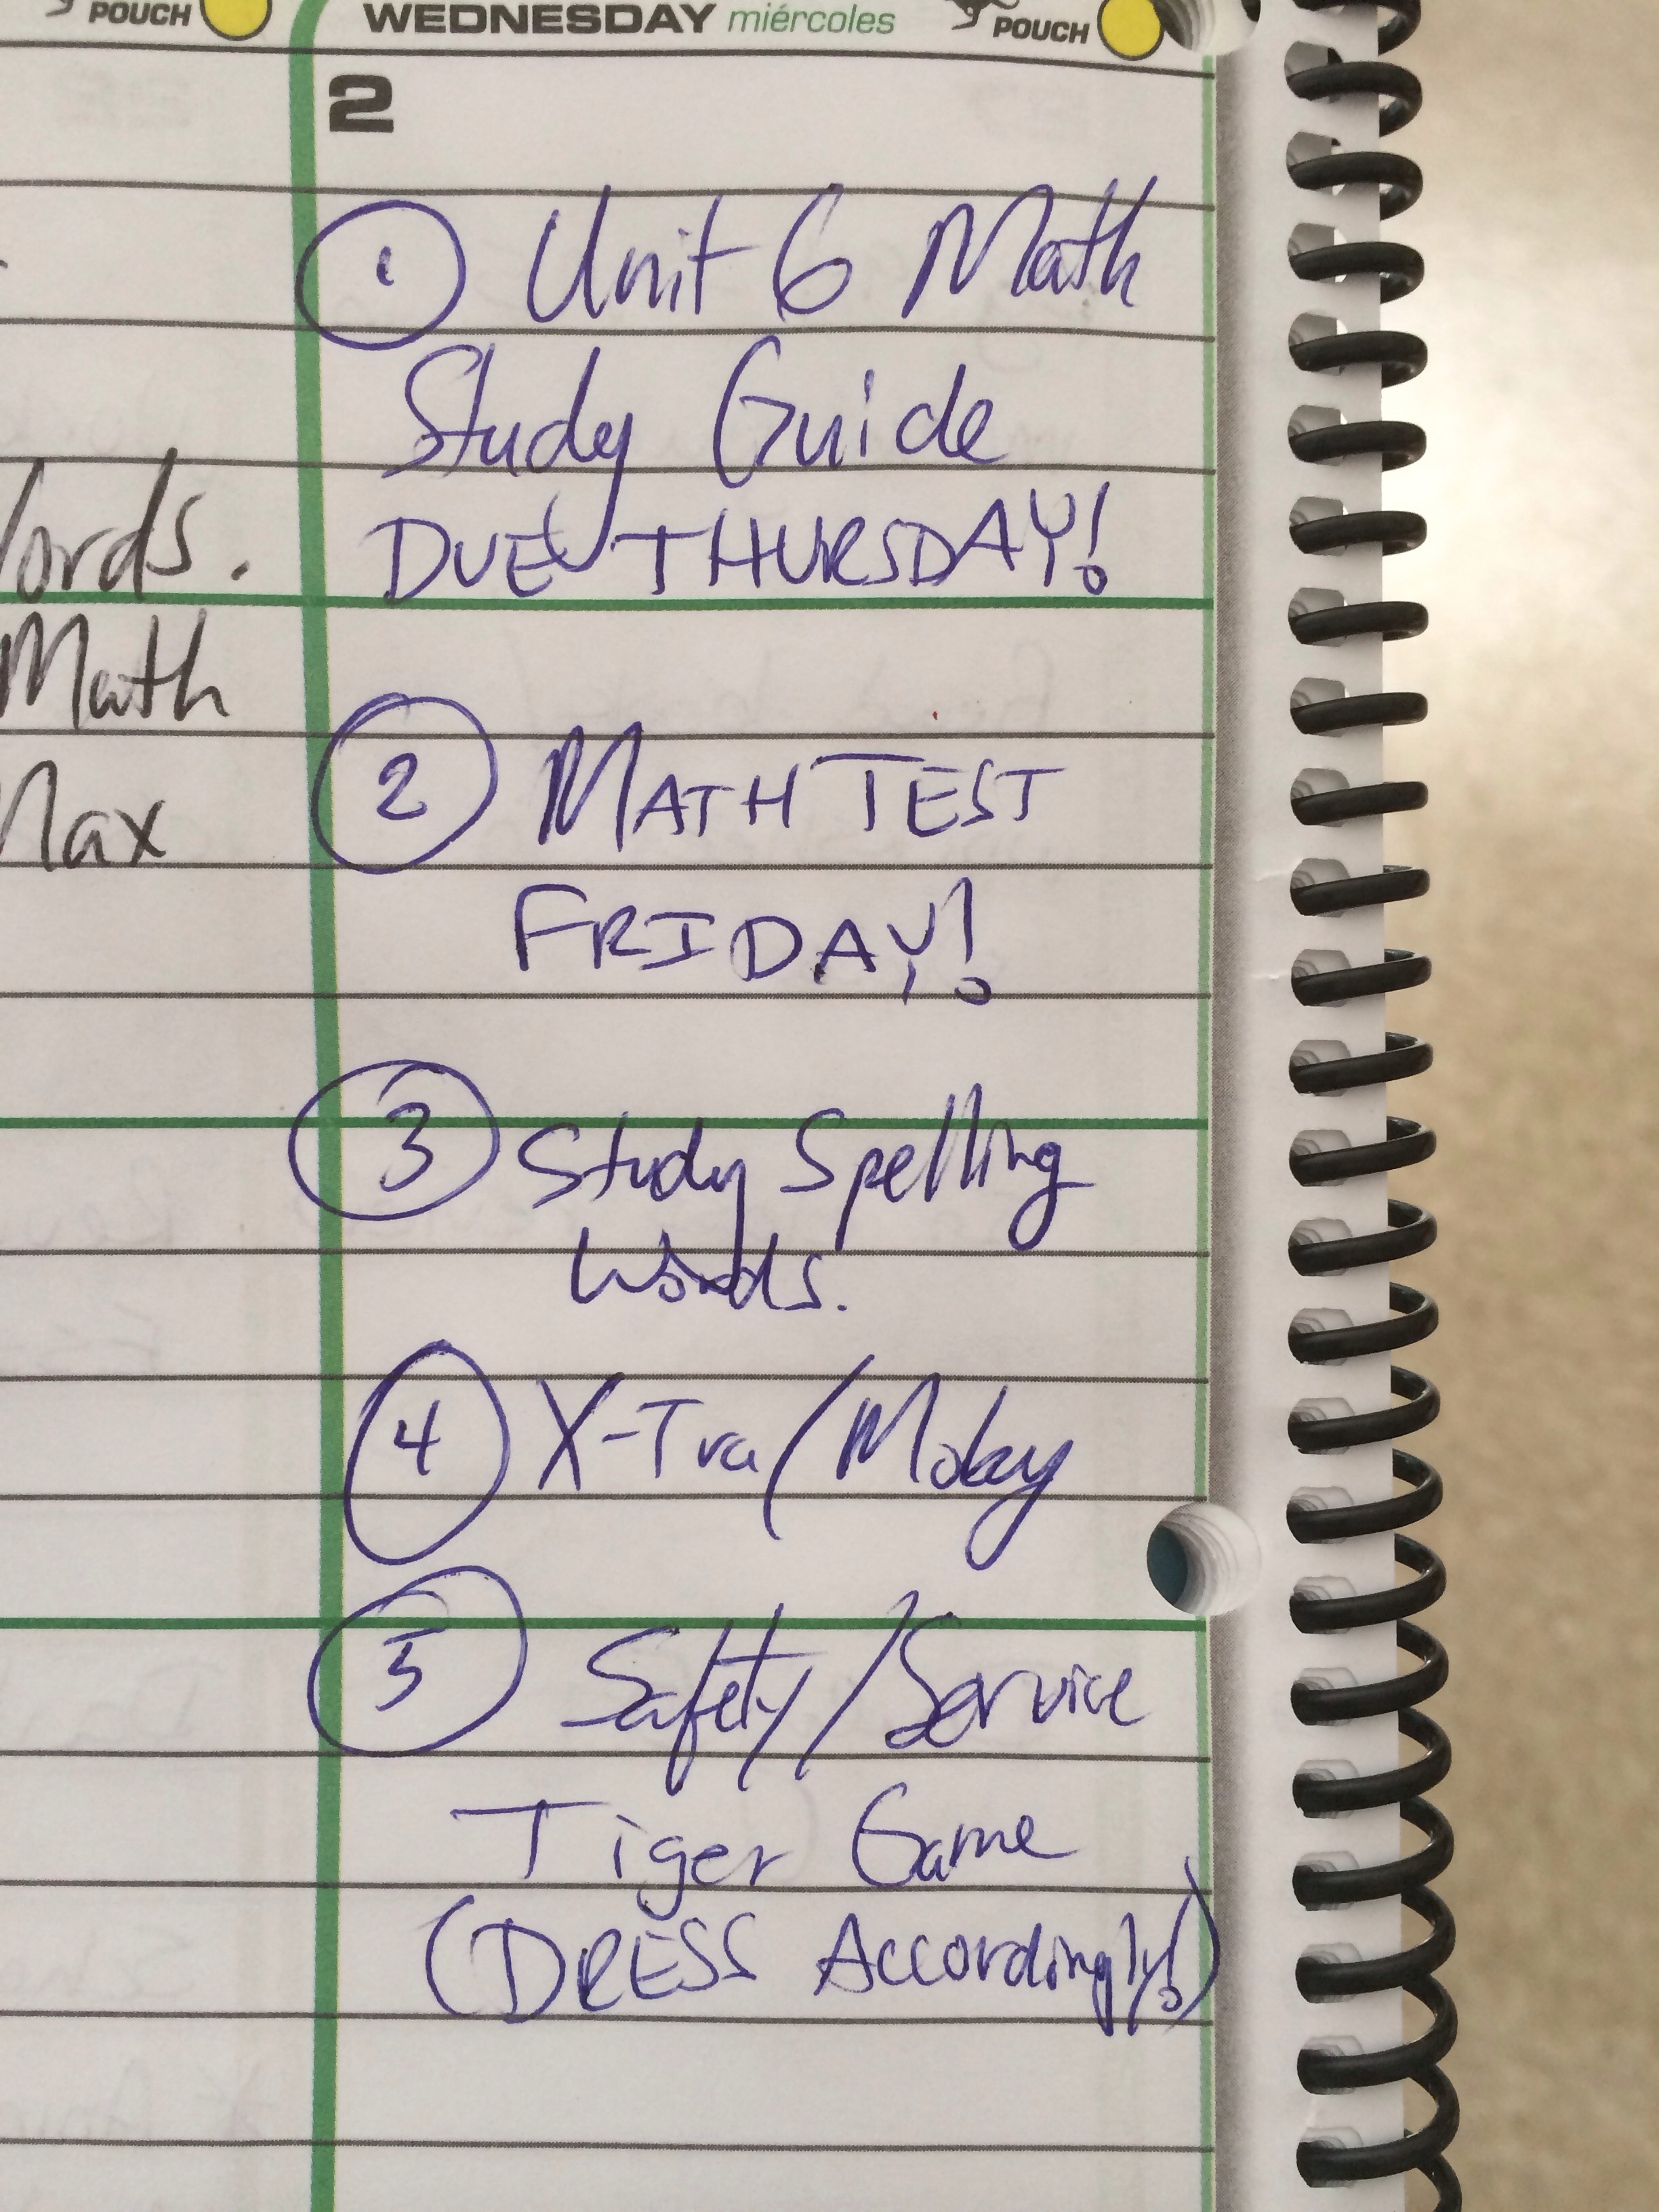 POUCH
WEDNESDAY miércoles POUCH
2
① Unit 6 Math
Study Guide
DUE THURSDAY!
② MATH TEST
FRIDAY!
③ Study Spelling
Words.
④ X-Tra/Moby
⑤ Safety/Service
Tiger Game
(DRESS Accordingly!)
ords.
Math
Max